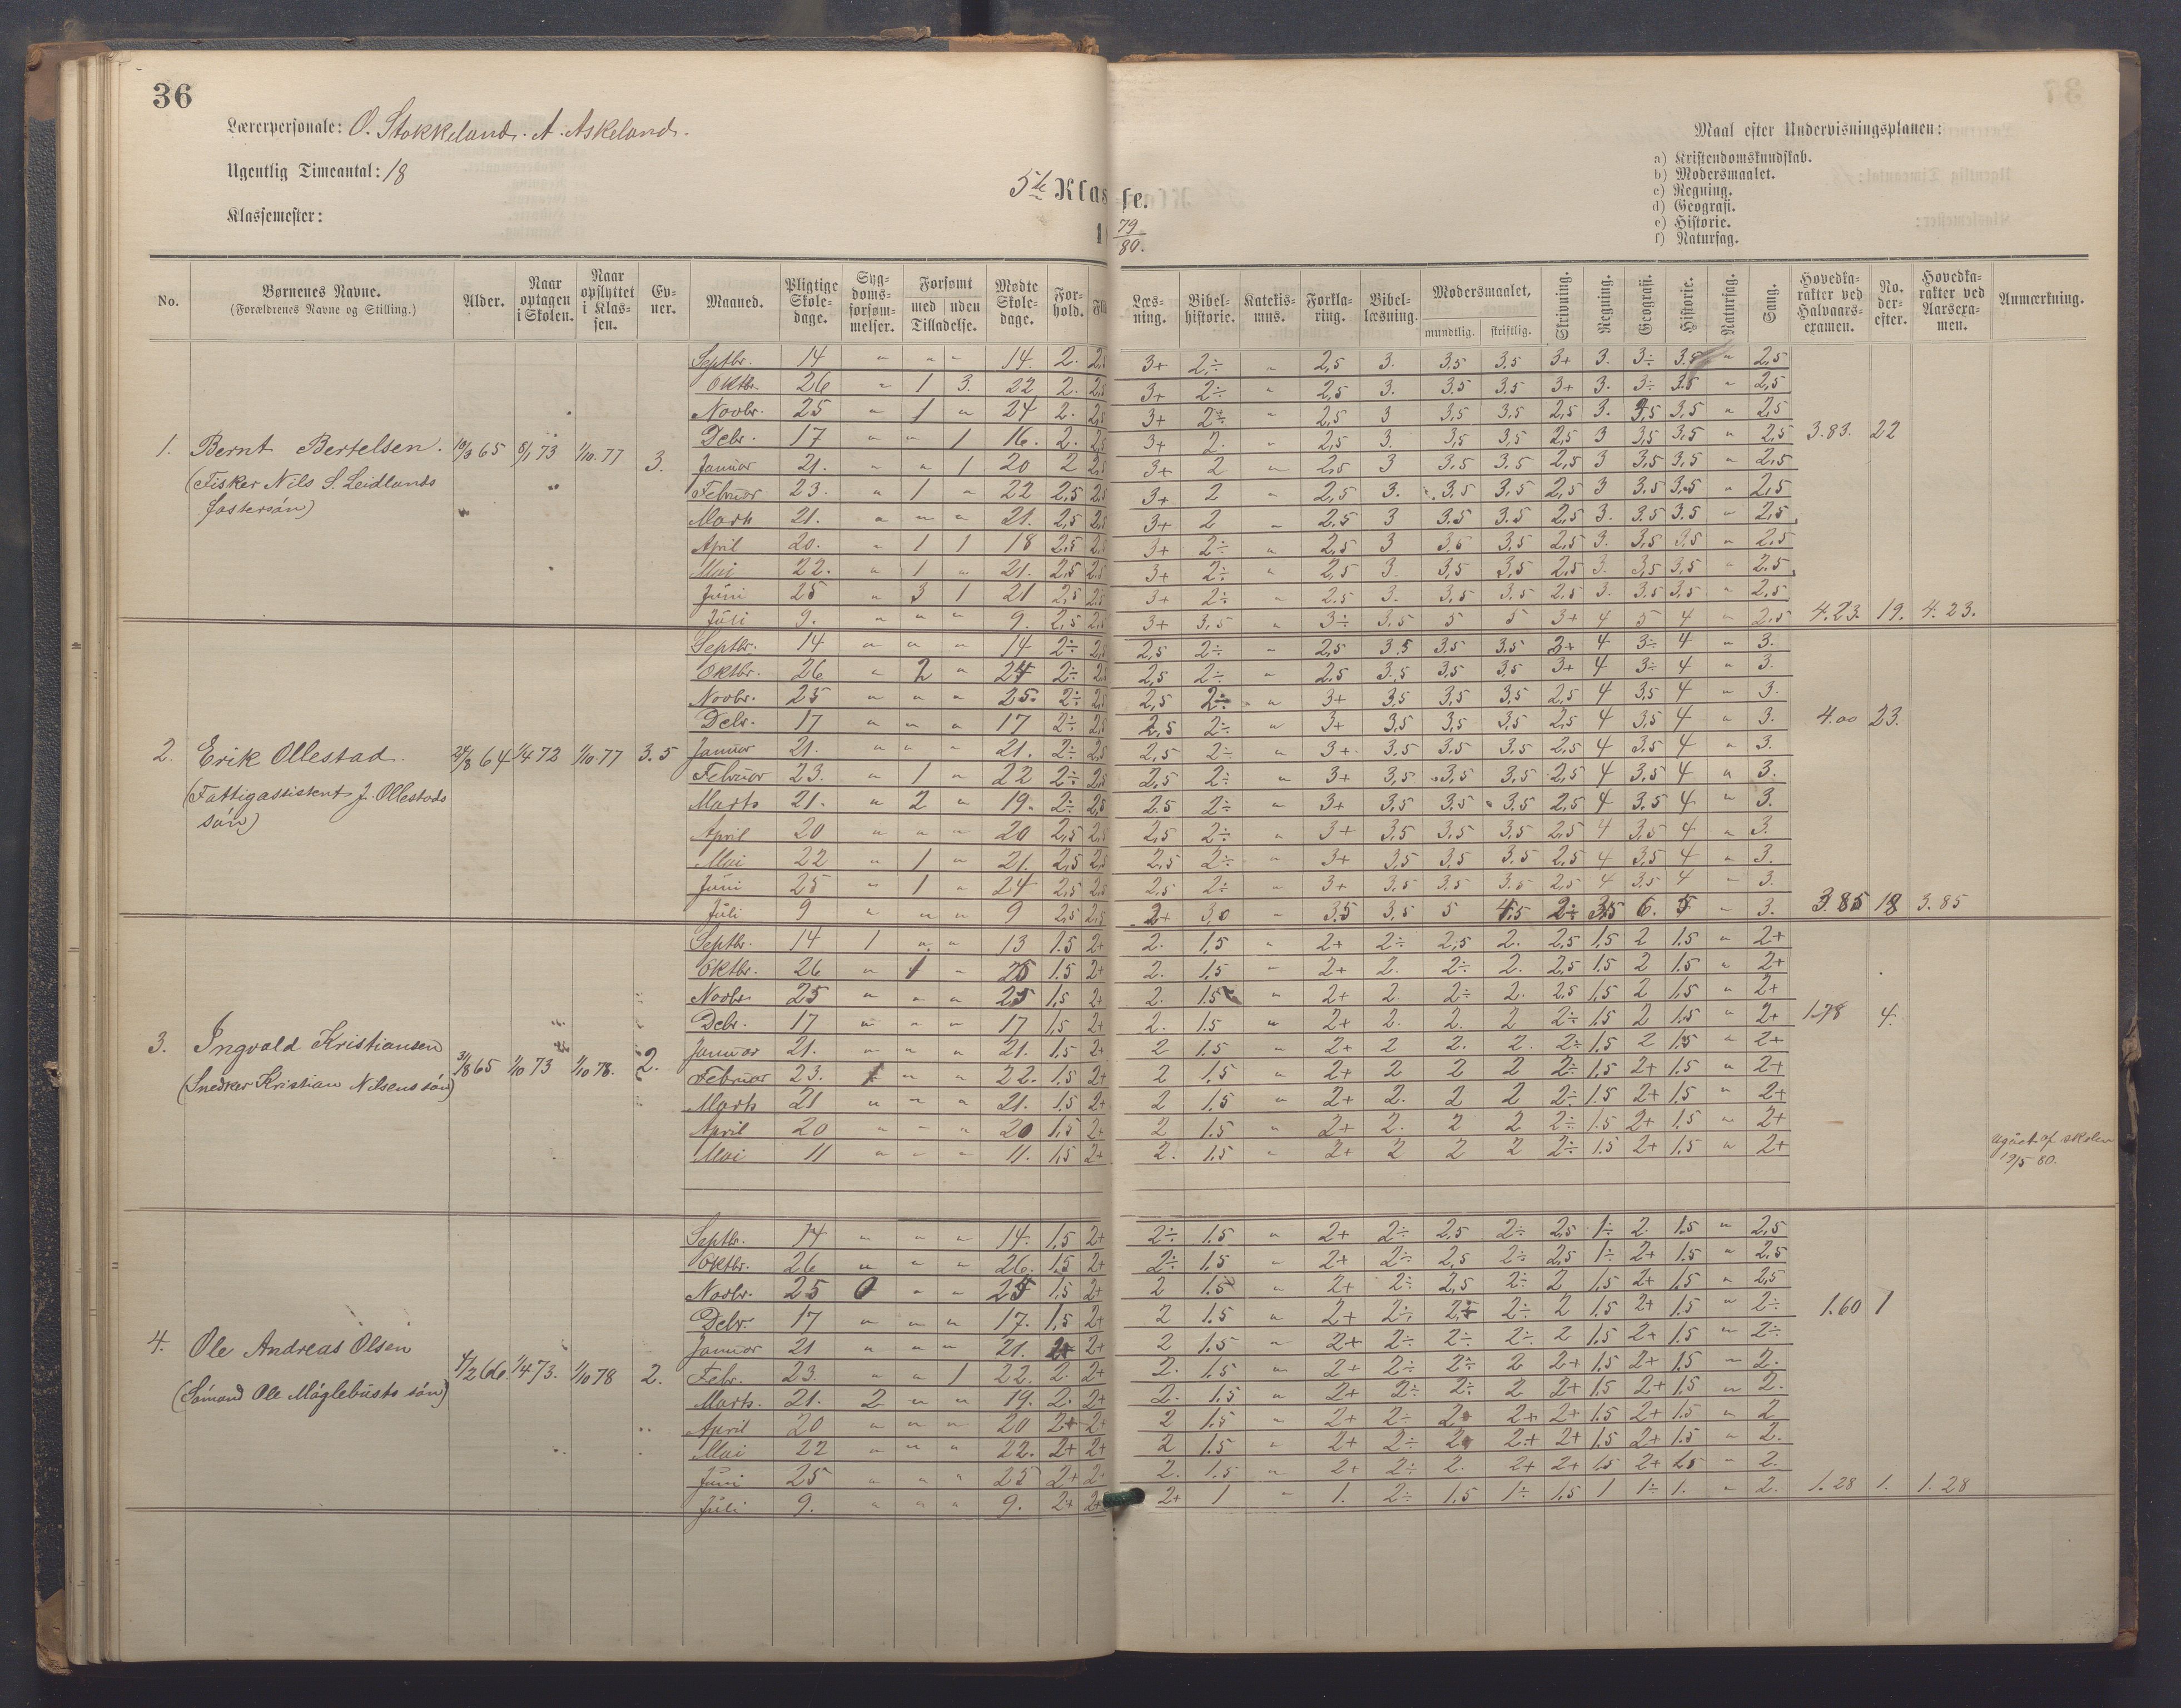 36
Lærerpersonale: O. Stokkeland. A. Askeland.
Ugentlig Timeantal: 18
Klassemester:
5te Klas
se.
79
80.
Maal efter Undervisningsplanen:
a) Kristendomskundskab.
b) Modersmaalet.
c) Regning.
d) Geografi.
e) Historie.
f) Naturfag.
No. Børnenes Navne. (Forældrenes Navne og Stilling.) Alder. Naar optagen i Skolen. Naar opflyttet i Klassen. Evner. Maaned. Pligtige Skoledage. Sygdomsforsømmelser. Forsømt med uden Tilladelse. Mødte Skoledage. Forhold. Læsning. Bibelhistorie. Katekismus. Forklaring. Bibellæsning. Modersmaalet, mundtlig. skriftlig. Skrivning. Regning. Geografi. Historie. Naturfag. Sang. Hovedkarakter ved Halvaarsexamen. No. derefter. Hovedkarakter ved Aarsexamen. Anmærkning.
1. Bernt Bertelsen. 65 8/1 73 1/10 77 3.
(Fisker Nils S. Leidlands
fostersøn)
Septbr. 14 " " " 14. 2. 2,5 3+ 2÷ " 2,5 3. 3,5 3,5 3+ 3. 3÷ 3,5 " 2,5
Oktbr. 26 " 1 3. 22 2. 2,5 3+ 2÷ " 2,5 3. 3,5 3,5 3+ 3. 3÷ 3,5 " 2,5
Novbr. 25 " 1 " 24 2. 2,5 3+ 2÷ " 2,5 3 3,5 3,5 2,5 3. 3,5 3,5 " 2,5
Debr. 17 " " 1 16. 2. 2,5 3+ 2. " 2,5 3. 3,5 3,5 2,5 3 3,5 3,5 " 2,5 3.83. 22
Januar 21. " " 1 20 2 2,5 3+ 2 " 2,5 3 3,5 3,5 2,5 3 3,5 3,5 " 2,5
Februar 23. " 1 " 22 2,5 2,5 3+ 2 " 2,5 3. 3,5 3,5 2,5 3 3,5 3,5 " 2,5
Marts 21. " " " 21. 2,5 2,5 3+ 2 " 2.5 3 3.5 3.5 2,5 3. 3.5 3.5 " 2,5
April 20. " 1 1 18 2,5 2,5 3+ 2÷ " 2,5 3 3,5 3,5 2,5 3. 3,5 3,5 " 2.5
Mai 22. " 1 " 21. 2,5 2,5 3+ 2÷ " 2,5 3. 3,5 3,5 2,5 3. 3,5 3,5 " 2.5
Juni 25 " 3 1 21 2,5 2,5 3+ 2÷ " 2.5 3. 3,5 3,5 2,5 3. 3.5 3,5 " 2,5
Juli 9. " " " 9. 2,5 2,5 3+ 3,5 " 3÷ 3,5 5 5 3+ 4 5 4 " 2.5 4.23. 19. 4.23.
2. Erik Ollestad. 64 1/4 72 1/10 77 3.5
(Fattigassistent J. Ollestads
søn)
Septbr. 14 " " " 14 2÷ 2,5 2,5 2÷ " 2,5 3.5 3,5 3,5 3+ 4 3÷ 4 " 3.
Oktbr. 26 " 2 " 24 2÷ 2,5 2,5 2÷ " 2.5 3,5 3,5 3,5 3+ 4 3÷ 4 " 3.
Novbr. 25 " " " 25. 2÷ 2,5 2,5 2÷ " 3+ 3,5 3,5 3,5 2,5 4 3,5 4 " 3.
Debr. 17 " " " 17 2÷ 2,5 2,5 2÷ " 3+ 3,5 3,5 3,5 2,5 4 3,5 4 " 3. 4.00 23.
Januar 21. " " " 21. 2÷ 2,5 2,5 2÷ " 3+ 3,5 3,5 3,5 2,5 4 3,5 4 " 3.
Februar 23. " 1 " 22 2÷ 2,5 2,5 2÷ " 3+ 3,5 3,5 3,5 2,5 4 3,5 4 " 3.
Marts 21. " 2 " 19. 2÷ 2,5 2.5 2÷ " 3+ 3,5 3.5 3,5 2,5 4 3.5 4 " 3.
April 20 " " " 20 2,5 2,5 2,5 2÷ " 3+ 3,5 3,5 3,5 2,5 4 3,5 4 " 3.
Mai 22 " 1 " 21. 2,5 2,5 2,5 2÷ " 3+ 3,5 3,5 3,5 2,5 4 3,5 4 " 3.
Juni 25 " 1 " 24 2,5 2,5 2,5 2÷ " 3+ 3,5 3,5 3,5 2,5 4 3.5 4 " 3.
Juli 9 " " " 9 2,5 2,5 2+ 3,0 " 3.5 3,5 5 4.5 2÷ 3,5 6. 5 " 3. 3.85 18 3.85
3. Ingvald Kristiansen 65 1/10 73 1/10 78. 2.
(Snedker Kristian Nilsens søn)
Septbr. 14 1 " " 13 1.5 2+ 2. 1,5 " 2+ 2÷ 2,5 2. 2,5 1,5 2 1.5 " 2+
Oktbr. 26 " 1 " 25 1.5 2+ 2. 1.5 " 2+ 2. 2÷ 2. 2,5 1.5 2 1.5 " 2+
Novbr. 25 " " " 25 1,5 2+ 2. 1.5 " 2+ 2. 2÷ 2. 2,5 1,5 2 1,5 " 2+
Debr. 17 " " " 17 1,5 2+ 2. 1.5 " 2+ 2. 2. 2 2÷ 1.5 2 1,5 " 2+ 1.78 4.
Januar 21. " " " 21. 1,5 2+ 2 1.5 " 2+ 2 2. 2. 2÷ 1,5 2 1,5 " 2+
Februar 23. 1 " " 22. 1.5 2+ 2 1,5 " 2+ 2 2 2 2÷ 1,5 2+ 1,5 " 2+
Marts 21 " " " 21. 1.5 2+ 2 1.5 " 2+ 2. 2 2 2÷ 1.5 2+ 1,5 " 2+
April 20 " " " 20 1,5 2+ 2 1.5 " 2+ 2. 2 2 2÷ 1.5 2+ 1,5 " 2+
Mai 11 " " " 11. 1,5 2+ 2. 1.5 " 2+ 2 2 2 2÷ 1.5 2+ 1.5 " 2+
af skolen
19/5 80.
4. Ole Andreas Olsen 1/4 73. 1/10 78 2.
(Sømand Ole Møglebusts søn)
Septbr. 14 " " " 14. 1,5 2+ 2÷ 1.5 " 2+ 2÷ 2,5 2÷ 2,5 1÷ 2. 1.5 " 2,5
Oktbr. 26 " " " 26. 1.5 2+ 2÷ 1.5 " 2+ 2÷ 2,5 2÷ 2,5 1÷ 2+ 1.5 " 2,5
Novbr. 25 0 " " 25 1,5 2+ 2 1.5 " 2+ 2÷ 2,5 2÷ 2 1,5 2+ 1,5 " 2,5
Debr. 17 " " " 17. 1,5 2+ 2 1.5 " 2+ 2÷ 2÷ 2÷ 2 1.5 2+ 1.5 " 2÷ 1.60 1
Januar 21 " " " 21. 2+ 2+ 2 1.5 " 2+ 2÷ 2÷ 2÷ 2 1,5 2+ 1.5 " 2÷
Febr. 23. " " 1 22. 2. 2+ 2. 1.5 " 2+ 2÷ 2÷ 2 2+ 1.5 2+ 1.5 " 2.
Marts. 21. 2 " " 19. 2. 2+ 2. 1.5 " 2+ 2÷ 2÷ 2 2+ 1.5 2+ 1.5 " 2.
April 20 " " " 20 2+ 2+ 2 1.5 " 2+ 2÷ 2 2+ 2+ 1.5 2+ 1.5 " 2
Mai 22 " " " 22. 2+ 2+ 2 1.5 " 2+ 2÷ 2 2+ 2+ 1,5 2+ 1.5 " 2.
Juni 25 " " " 25 2+ 2+ 2. 1.5 " 2+ 2÷ 2. 2+ 2+ 1.5 2+ 1.5 " 2.
Juli 9. " " " 9. 2+ 2+ 2+ 1 " 1. 2÷ 1,5 1÷ 1,5 1 1÷ 1. " 2. 1.28 1. 1.28